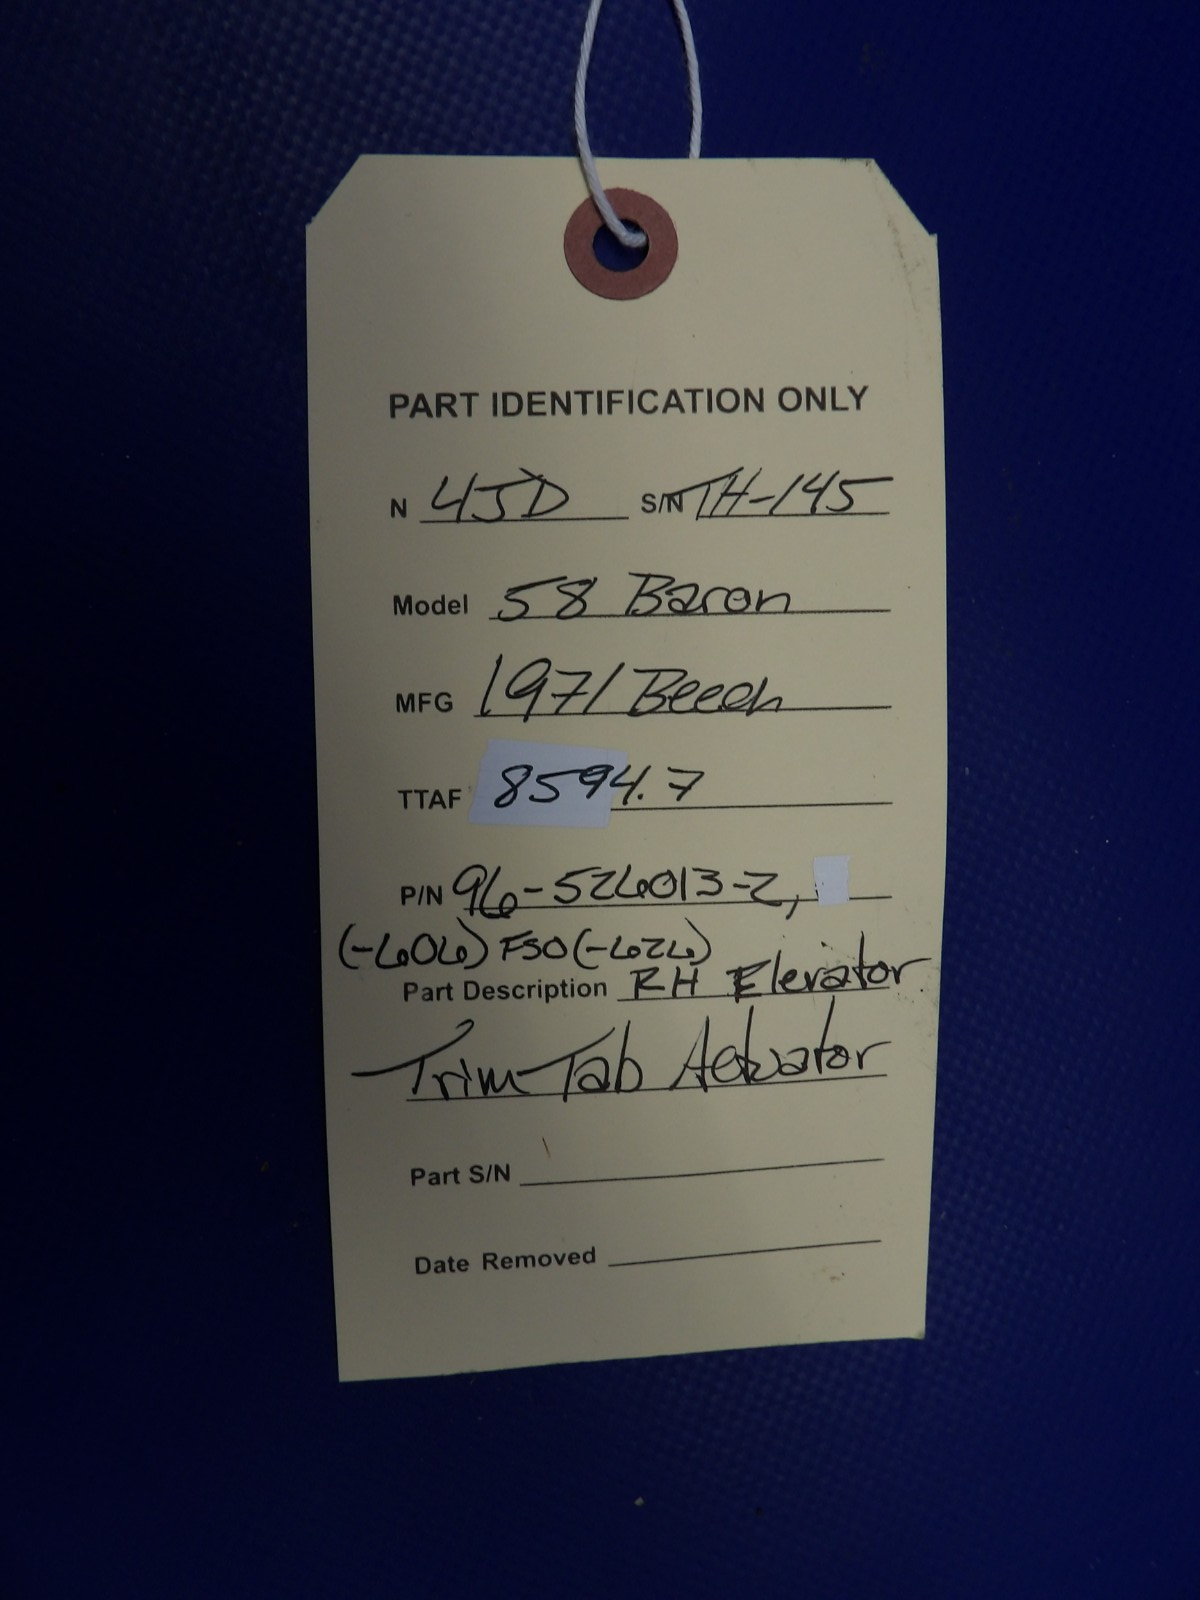 PART IDENTIFICATION ONLY
N 45D S/N TH-145
Model 58 Baron
MFG 1971 Beech
TTAF 8594.7
P/N 96-526013-2,
(-606) FSO (-626)
Part Description RH Elevator
Trim Tab Actuator
Part S/N
Date Removed